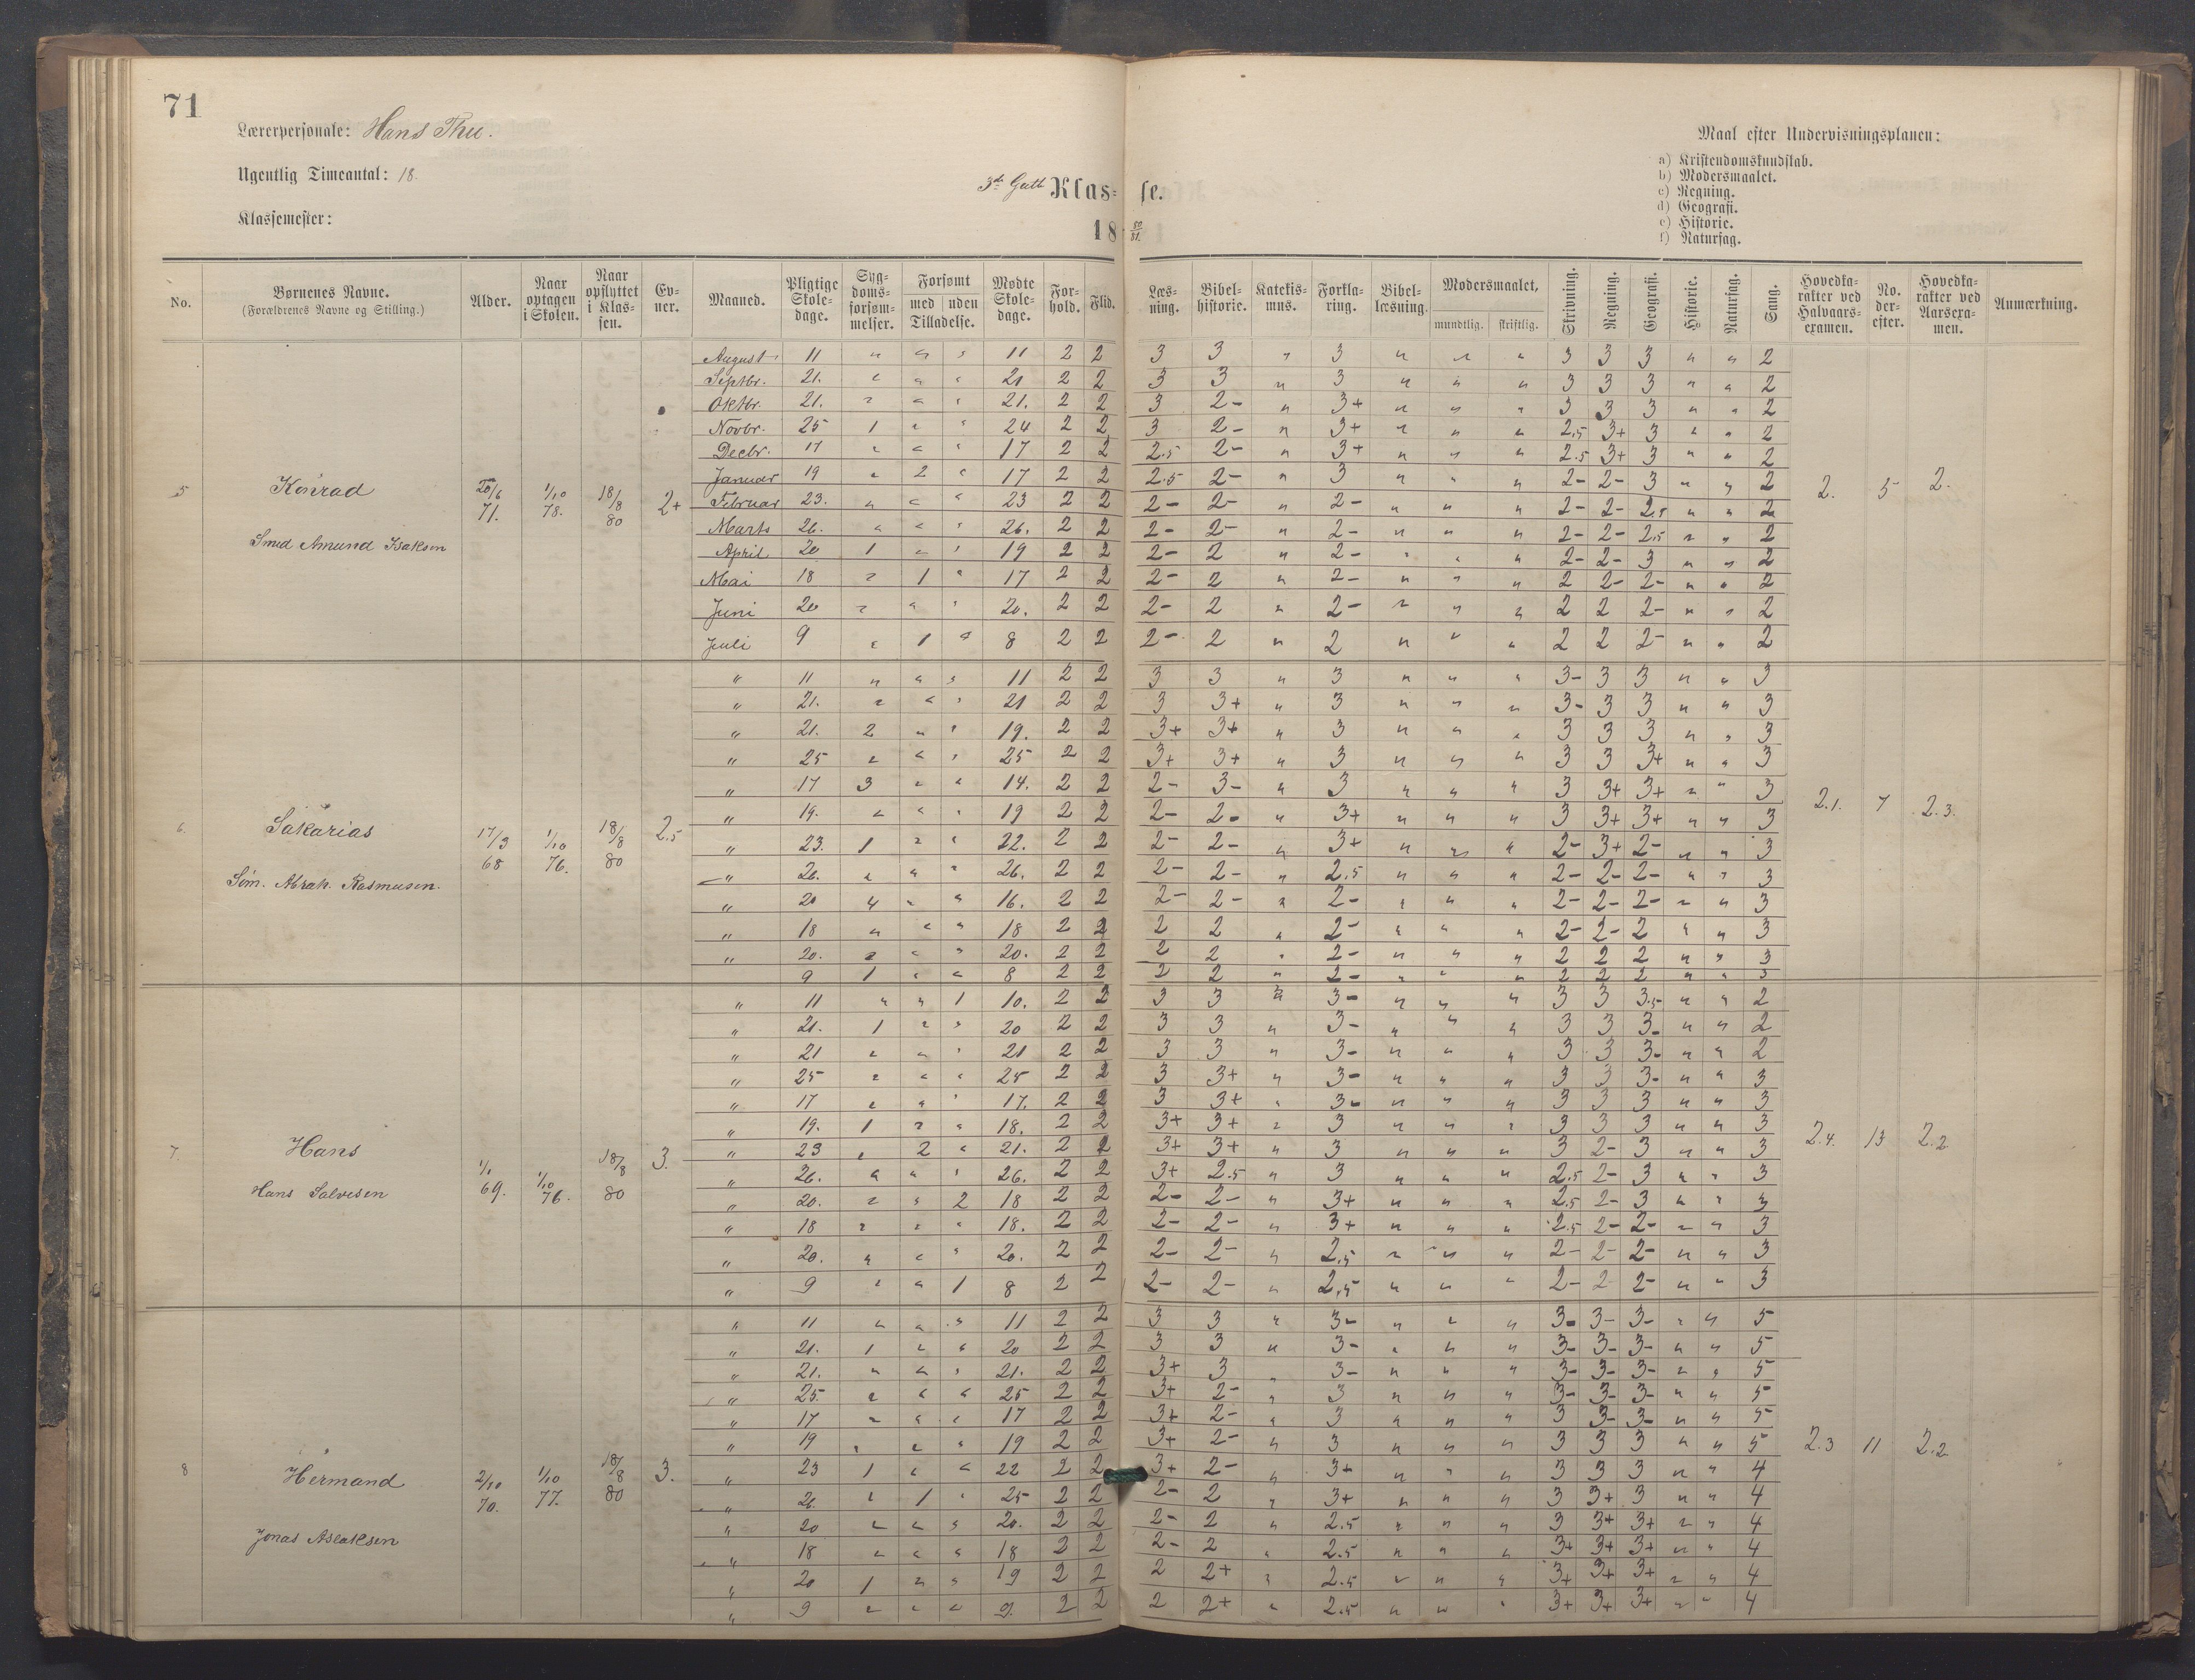 71
Lærerpersonale: Hans Thu.
Ugentlig Timeantal: 18.
Klassemester:
3die Gutte Klas= se.
18 80/81.
Maal efter Undervisningsplanen:
a) Kristendomskundskab.
b) Modersmaalet.
c) Regning.
d) Geografi.
e) Historie.
f) Naturfag.
No. Børnenes Navne. (Forældrenes Navne og Stilling.) Alder. Naar optagen i Skolen. Naar opflyttet i Klassen. Evner. Maaned. Pligtige Skoledage. Sygdomsforsømmelser. Forsømt med uden Tilladelse. Mødte Skoledage. Forhold. Flid. Læsning. Bibelhistorie. Katekismus. Forklaring. Bibellæsning. Modersmaalet, mundtlig. skriftlig. Skrivning. Regning. Geografi. Historie. Naturfag. Sang. Hovedkarakter ved Halvaarsexamen. No. derefter. Hovedkarakter ved Aarsexamen. Anmærkning.
5 Konrad
Smed Amund Isaksen
20/6 71. 1/10 78. 18/8 80 2+ 2. 5 2.
August 11 " " " 11 2 2 3 3 " 3 " " " 3 3 3 " " 2
Septbr. 21. " " " 21 2 2 3 3 " 3 " " " 3 3 3 " " 2
Oktbr. 21. " " " 21. 2 2 3 2- " 3+ " " " 3 3 3 " " 2
Novbr. 25 1 " " 24 2 2 3 2- " 3+ " " " 2.5 3+ 3 " " 2
Decbr. 17 " " " 17 2 2 2.5 2- " 3+ " " " 2.5 3+ 3 " " 2
Januar 19 " 2 " 17 2 2 2.5 2- " 3 " " " 2- 2- 3 " " 2
Februar 23. " " " 23 2 2 2- 2- " 2- " " " 2- 2- 2.5 " " 2
Marts 26. " " " 26. 2 2 2- 2- " 2- " " " 2- 2- 2.5 " " 2
April 20 1 " " 19 2 2 2- 2 " 2- " " " 2- 2- 3 " " 2
Mai 18 " 1 " 17 2 2 2- 2 " 2- " " " 2 2- 2- " " 2
Juni 20 " " " 20. 2 2 2- 2 " 2- " " " 2 2 2- " " 2
Juli 9 " 1 " 8 2 2 2- 2 " 2 " " " 2 2 2- " " 2
6. Sakarias
Søm. Abrah. Rasmusen.
17/3 68 1/10 76. 18/8 80 2.5 2.1. 7 2.3.
" 11 " " " 11 2 2 3 3 " 3 " " " 3- 3 3 " " 3
" 21. " " " 21 2 2 3 3+ " 3 " " " 3- 3 3 " " 3
" 21. 2 " " 19. 2 2 3+ 3+ " 3 " " " 3 3 3 " " 3
" 25 " " " 25 2 2 3+ 3+ " 3 " " " 3 3 3+ " " 3
" 17 3 " " 14. 2 2 2- 3- " 3 " " " 3 3+ 3+ " " 3
" 19. " " " 19 2 2 2- 2- " 3+ " " " 3 3+ 3+ " " 3
" 23. 1 " " 22. 2 2 2- 2- " 3+ " " " 2- 3+ 2- " " 3
" 26. " " " 26. 2 2 2- 2- " 2.5 " " " 2- 2- 2- " " 3
" 20 4 " " 16. 2 2 2- 2- " 2- " " " 2- 2- 2- " " 3
" 18 " " " 18 2 2 2 2 " 2- " " " 2- 2- 2 " " 3
" 20. " " " 20. 2 2 2 2 " 2- " " " 2 2 2 " " 3
9 1 " " 8 2 2 2 2 " 2- " " " 2 2 2 " " 3
7. Hans
Hans Salvesen
1/1 69. 1/10 76. 18/8 80 3. 2.4. 13 2.2
" 11 " " 1 10. 2 2 3 3 " 3- " " " 3 3 3.5 " " 2
" 21. 1 " " 20 2 2 3 3 " 3- " " " 3 3 3- " " 2
" 21 " " " 21 2 2 3 3 " 3- " " " 3 3 3- " " 2
" 25 " " " 25 2 2 3 3+ " 3- " " " 3 3 3- " " 3
" 17 " " " 17. 2 2 3 3+ " 3- " " " 3 3 3 " " 3
" 19. 1 " " 18. 2 2 3+ 3+ " 3 " " " 3 3 3 " " 3
" 23 " 2 " 21. 2 2 3+ 3+ " 3 " " " 3 2- 3 " " 3
" 26. " " " 26. 2 2 3+ 2.5 " 3 " " " 2.5 2- 3 " " 3
" 20. " " 2 18 2 2 2- 2- " 3+ " " " 2.5 2- 3 " " 3
" 18 " " " 18. 2 2 2- 2- " 3+ " " " 2.5 2- 2- " " 3
" 20. " " " 20. 2 2 2- 2- " 2.5 " " " 2- 2- 2- " " 3
" 9 " " 1 8 2 2 2- 2- " 2.5 " " " 2- 2 2- " " 3
8 Hermand
Jonas Aslaksen
2/10 70. 1/10 77. 18/8 80 3. 2.3 11 2.2
" 11 " " " 11 2 2 3 3 " 3- " " " 3- 3- 3- " " 5
" 21. 1 " " 20 2 2 3 3 " 3- " " " 3- 3- 3- " " 5
" 21. " " " 21. 2 2 3+ 3 " 3- " " " 3- 3- 3- " " 5
" 25. " " " 25 2 2 3+ 2- " 3 " " " 3- 3- 3- " " 5
" 17 " " " 17 2 2 3+ 2- " 3 " " " 3 3- 3- " " 5
" 19 " " " 19 2 2 3+ 2- " 3 " " " 3 3 3 " " 5
" 23 1 " " 22 2 2 3+ 2- " 3+ " " " 3 3 3 " " 4
" 26. " 1 " 25 2 2 2- 2 " 3+ " " " 3 3+ 3 " " 4
" 20 " " " 20. 2 2 2- 2 " 2.5 " " " 3 3+ 3+ " " 4
" 18 " " " 18 2 2 2- 2 " 2.5 " " " 3+ 3+ 3+ " " 4
" 20 1 " " 19 2 2 2 2+ " 2.5 " " " 3+ 3+ 3+ " " 4
" 9 " " " 9. 2 2 2 2+ " 2.5 " " " 3+ 3+ 3+ " " 4